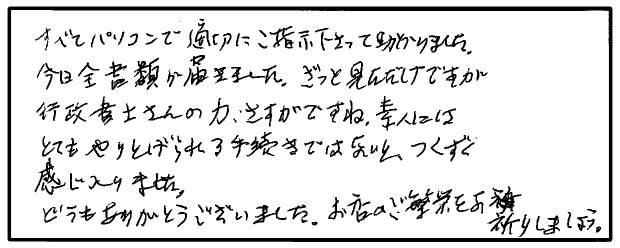 すべてパソコンで適切にご指示下さって助かりました。
今日全書類が届きました。ざっと見ただけですが
行政書士さんの力、さすがですね。素人には
とてもやりとげられる手続きではないと、つくずく
感じ入りました。
どうもありがとうございました。お店のご繁栄をお
祈りしましょう。